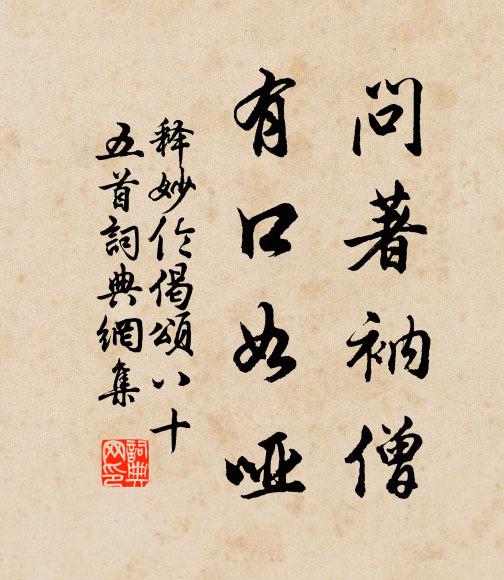 問著衲僧
有口如啞
释妙伦偈頌八十
五首詞典網集
詞典网印